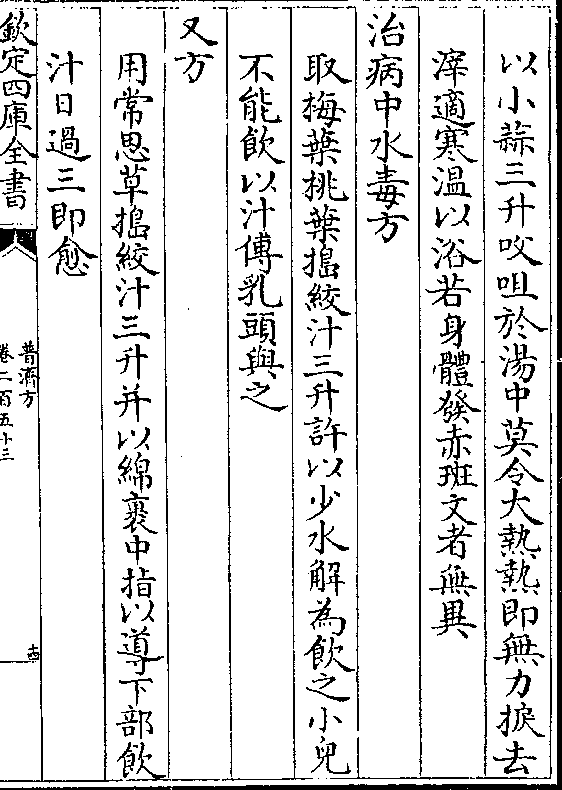 以小蒜三升㕮咀於湯中莫令大熱熱即無力捩去
滓適寒温以浴若身體發赤斑文者無異
治病中水毒方
取梅葉桃葉搗絞汁三升許以少水解為飲之小兒
不能飲以汁傅乳頭與之
又方
用常思草搗絞汁三升并以綿裹中指以導下部飲
汁日過三即愈
欽定四庫全書
普濟方
卷二百五十三
十四